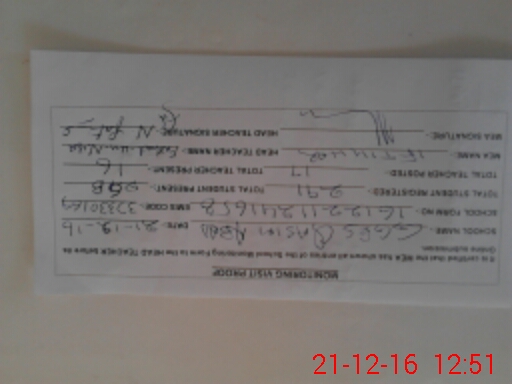 MONITORING VISIT PROOF
It is certified that the MEA has shown all entries of the School Monitoring Form to the HEAD TEACHER before its
Online submission.
SCHOOL NAME:- GGPS QASIM ABAD DATE: 21-12-16
SCHOOL FORM NO EMIS CODE:
TOTAL STUDENT REGISTERED: 291 TOTAL STUDENT PRESENT: 268
TOTAL TEACHER POSTED: 17 TOTAL TEACHER PRESENT: 16
MEA NAME: HEAD TEACHER NAME:
MEA SIGNATURE:- HEAD TEACHER SIGNATURE:-
21-12-16 12:51